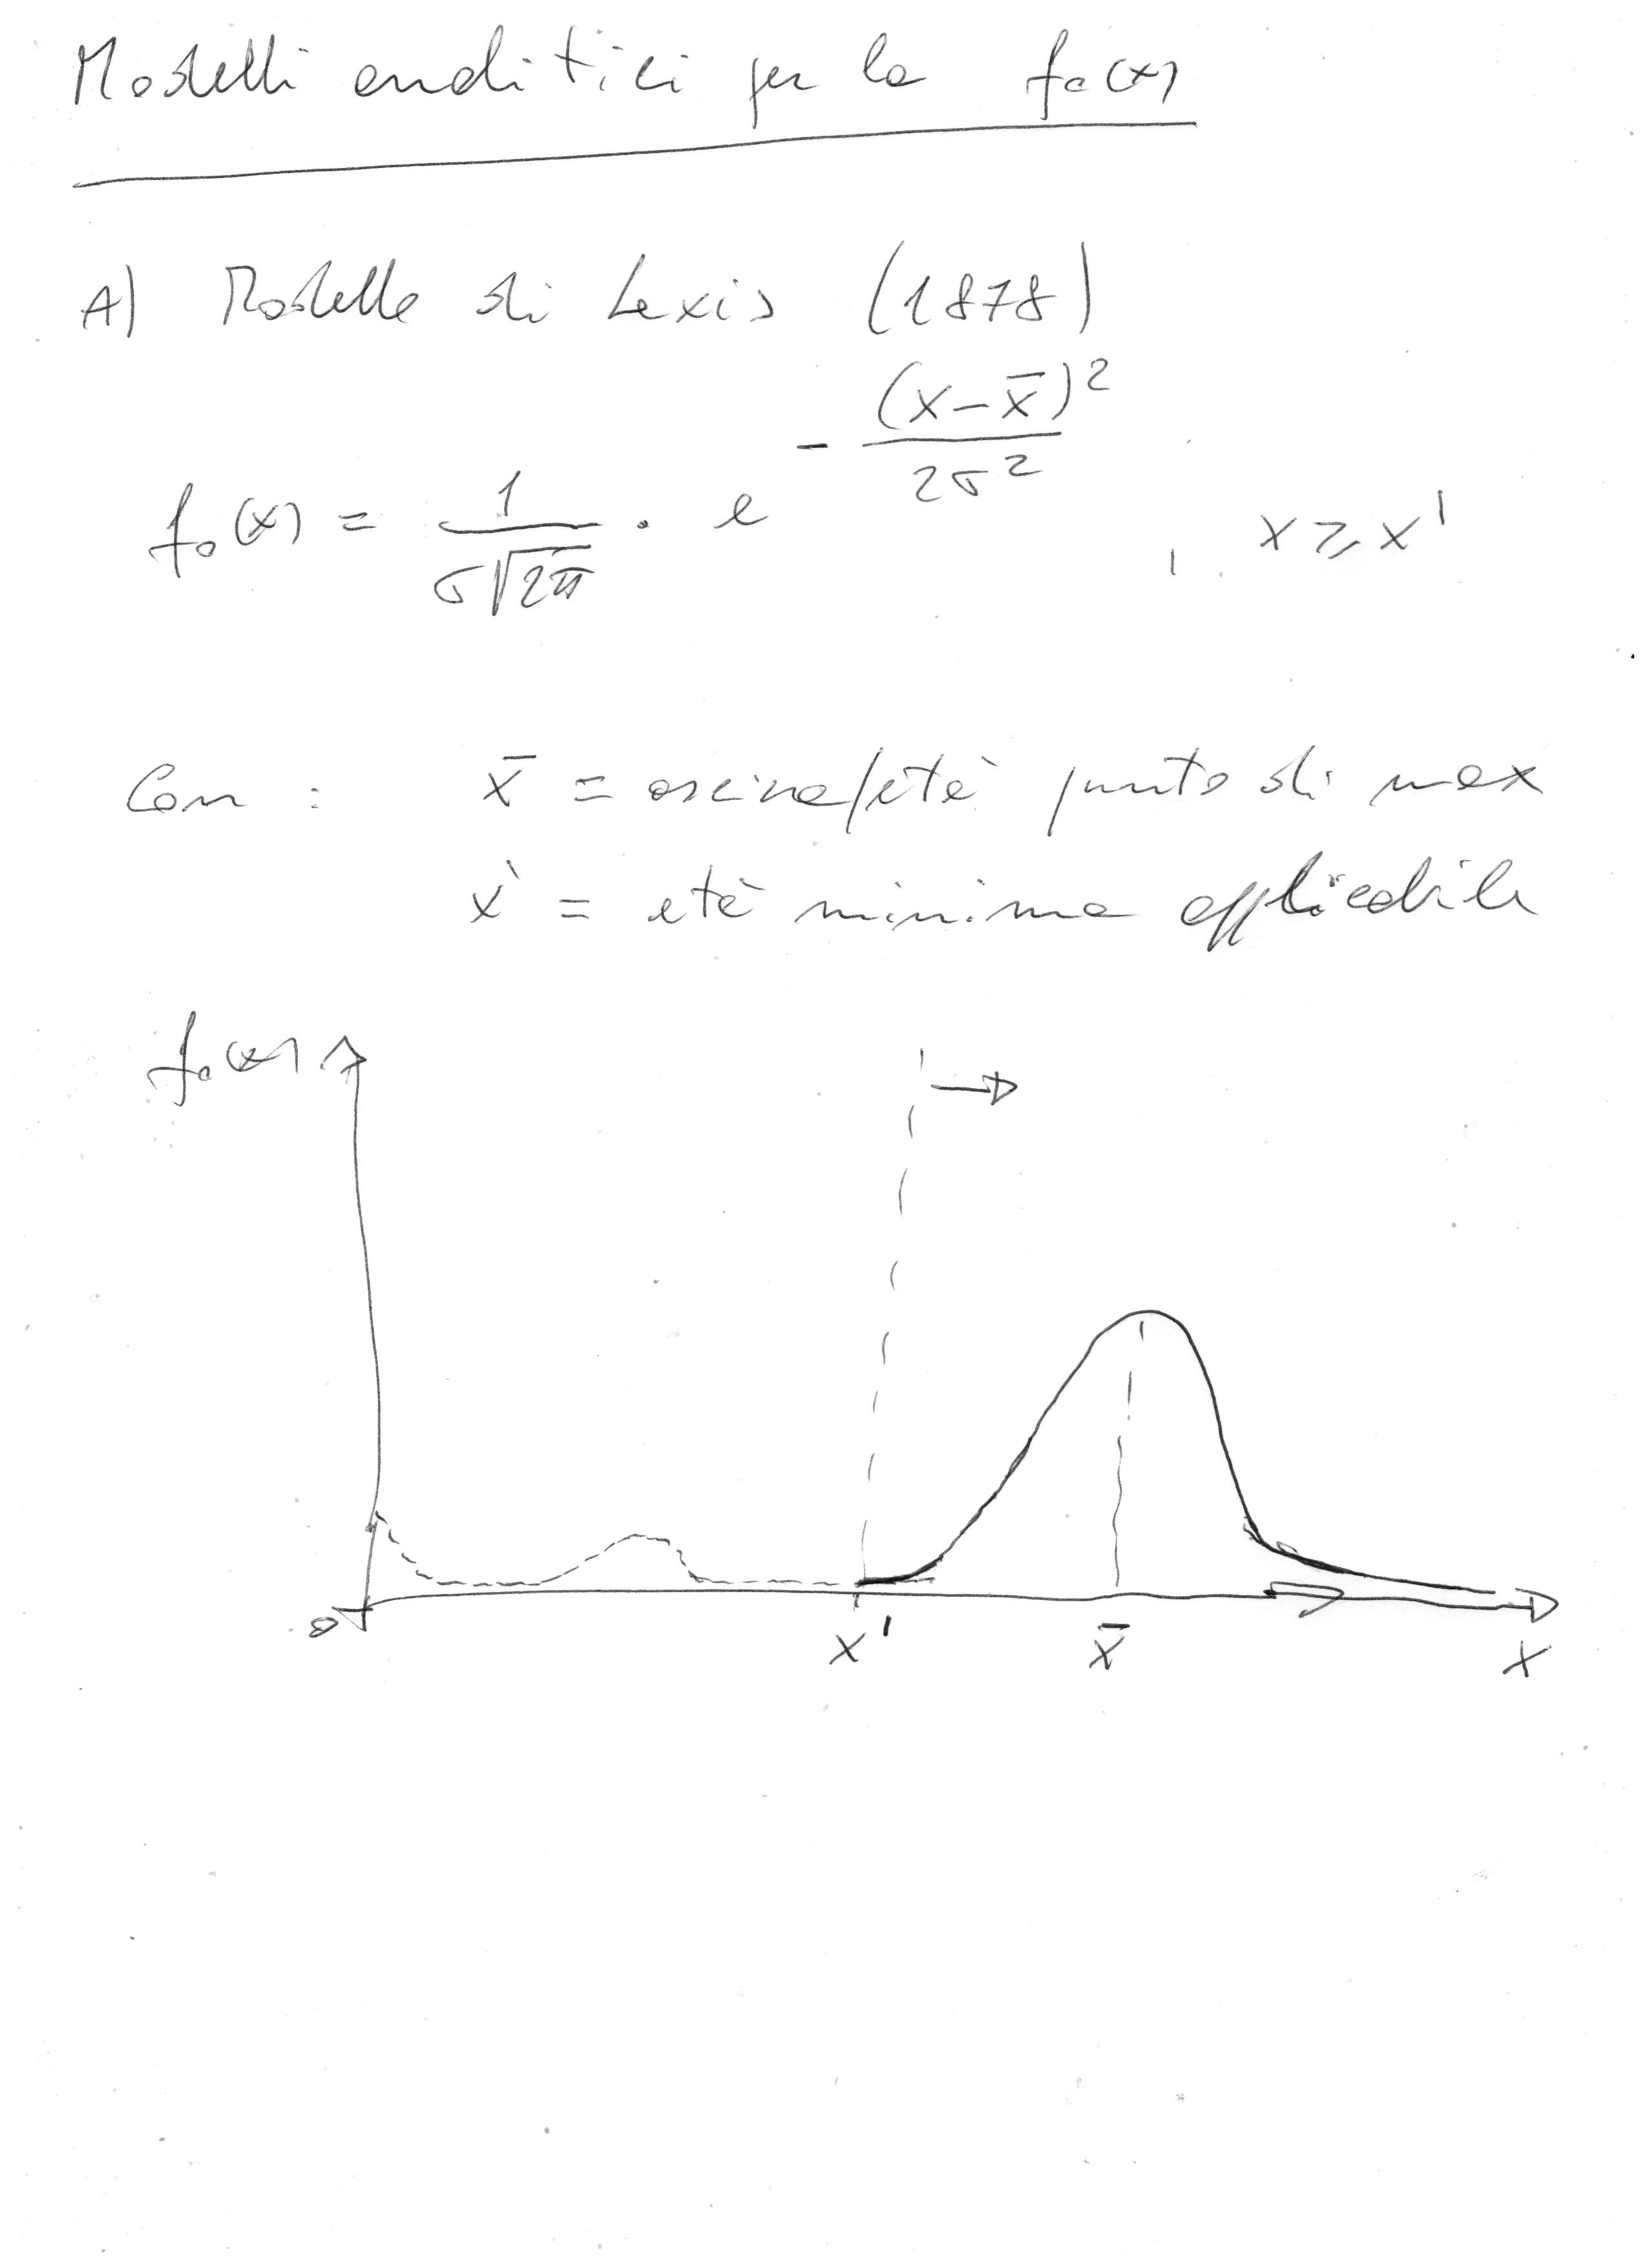 Modelli analitici per la f₀(x)
A) Modello di Lexis (1878)
f₀(x) = 1/(σ√2π) · e^(-(x-x̄)²/(2σ²)) , x ≥ x'
Con : x̄ = ascissa/età punto di max
x' = età minima applicabile
f₀(x)
0 x' x̄ x